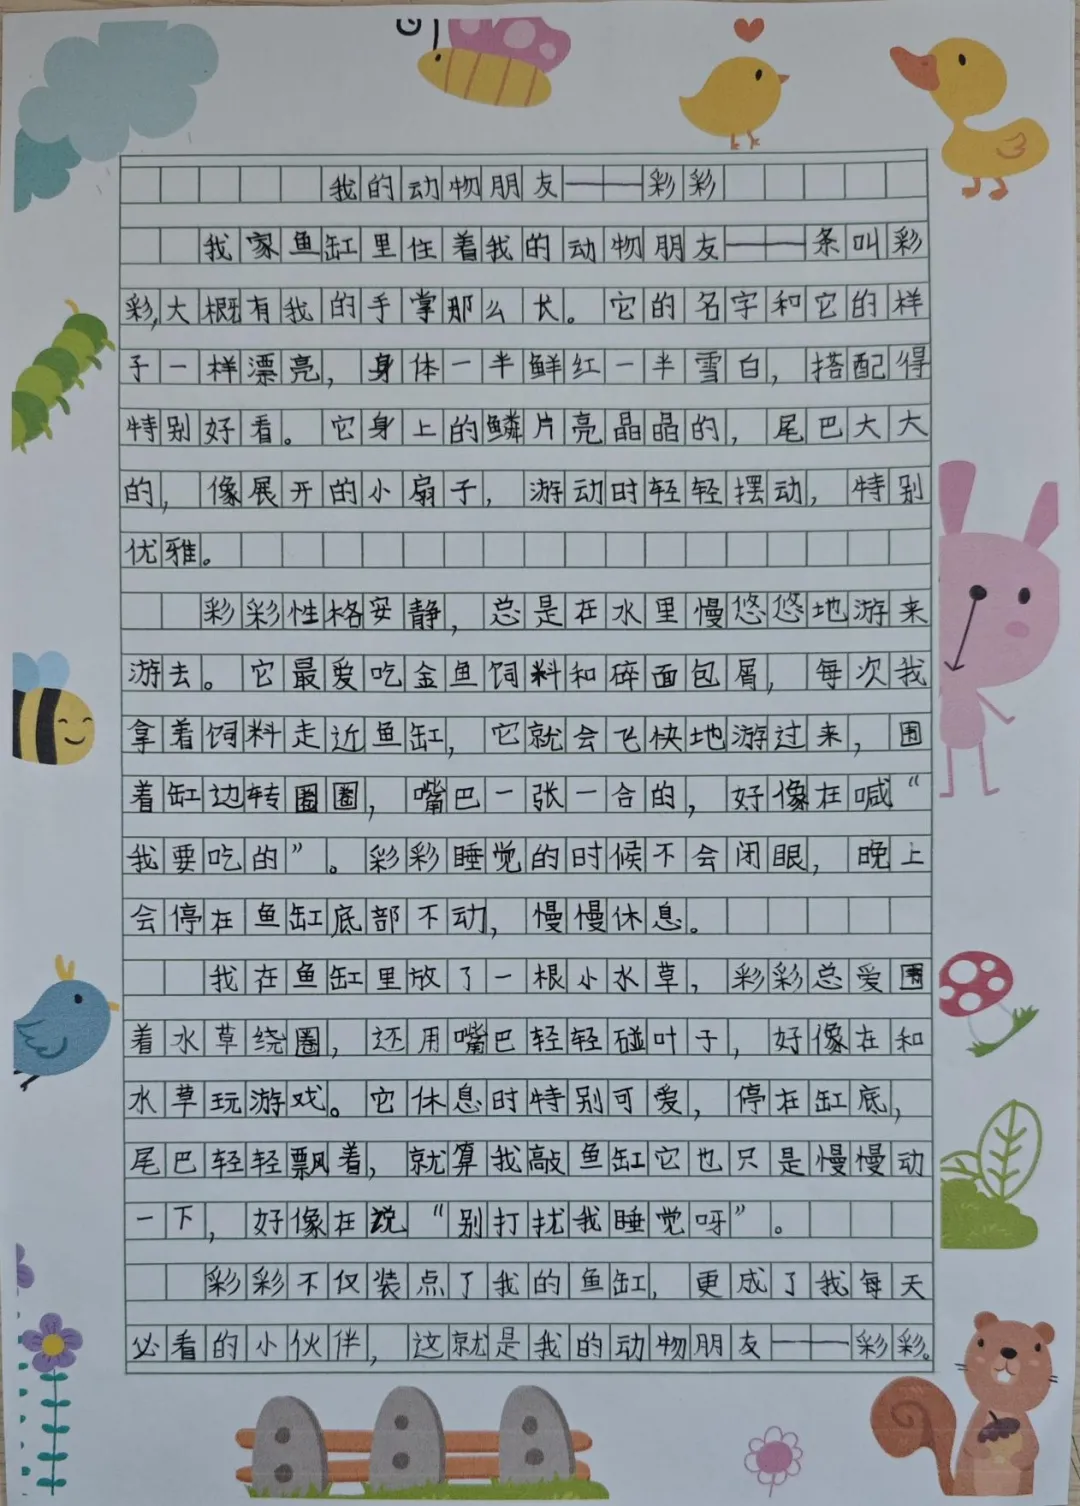 我的动物朋友——彩彩
我家鱼缸里住着我的动物朋友——条叫彩
彩,大概有我的手掌那么长。它的名字和它的样
子一样漂亮，身体一半鲜红一半雪白，搭配得
特别好看。它身上的鳞片亮晶晶的，尾巴大大
的，像展开的小扇子，游动时轻轻摆动，特别
优雅。
彩彩性格安静，总是在水里慢悠悠地游来
游去。它最爱吃金鱼饲料和碎面包屑，每次我
拿着饲料走近鱼缸，它就会飞快地游过来，围
着缸边转圈圈，嘴巴一张一合的，好像在喊“
我要吃的”。彩彩睡觉的时候不会闭眼，晚上
会停在鱼缸底部不动，慢慢休息。
我在鱼缸里放了一根小水草，彩彩总爱围
着水草绕圈，还用嘴巴轻轻碰叶子，好像在和
水草玩游戏。它休息时特别可爱，停在缸底，
尾巴轻轻飘着，就算我敲鱼缸它也只是慢慢动
一下，好像在说“别打扰我睡觉呀”。
彩彩不仅装点了我的鱼缸，更成了我每天
必看的小伙伴，这就是我的动物朋友——彩彩。